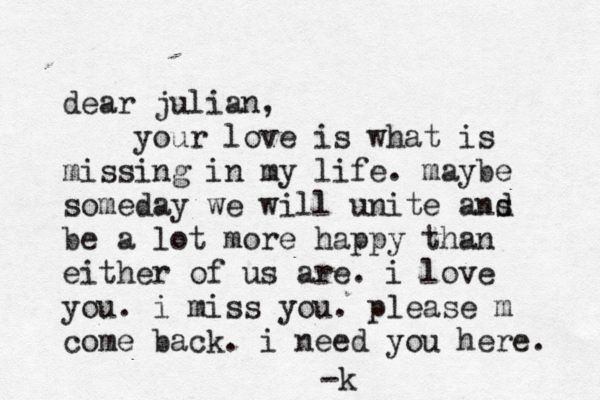 dear julian,
your love is what is
missing in my life. maybe
someday we will unite and
be a lot more happy than
either of us are. i love
you. i miss you. please m
come back. i need you here.
-k